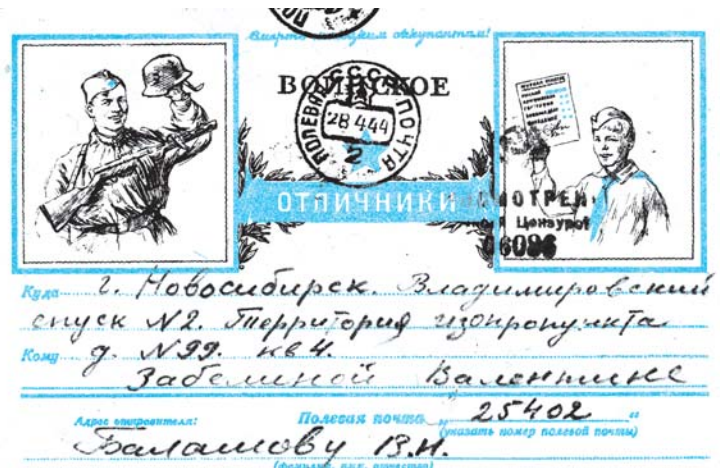 Смерть немецким оккупантам!
ВОИНСКОЕ
СССР
ПОЛЕВАЯ ПОЧТА
28 4 44
2
ОТЛИЧНИКИ
ПРОСМОТРЕНО
Цензурой
06096
Куда г. Новосибирск. Владимировский
спуск №2. Территория изопропункта
Кому д. №99. кв 4.
Забелиной Валентине
Адрес отправителя: Полевая почта „ 25402 “
(указать номер полевой почты)
Балашову В.Н.
(фамилия, имя, отчество)